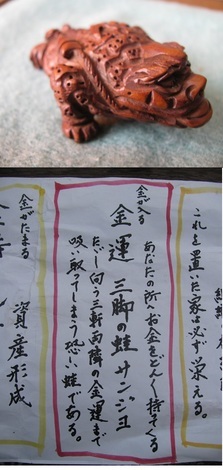 これを置いた家は必ず栄える。
金が入る
金運 三脚の蛙サンジョ
あなたの所へお金をどんどん持てくる
だし向う三軒両隣の金運まで
吸い取ってしまう恐い蛙である。
金がたまる
資産形成